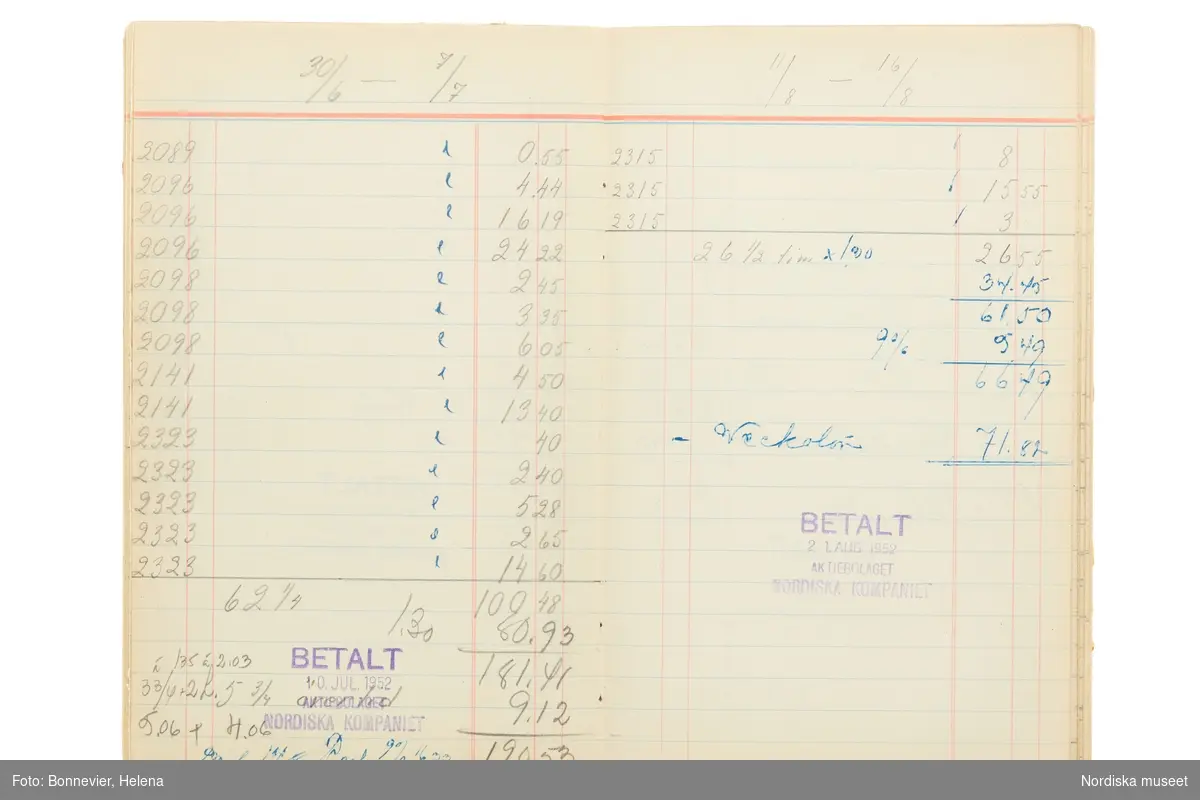 30/6 — 7/7
2089 0.55
2096 4.44
2096 16 19
2096 24 22
2098 2 45
2098 3 35
2098 6 05
2141 4 50
2141 13 40
2323 40
2323 2 40
2323 5 28
2323 2 65
2323 14 60
62 1/4 100 48
1.30 80.93
181.41
à 135 à 2.03
33/4 + 2 h. 5 3/4
9.12
5.06 + 4.06
190.53
BETALT
10. JUL. 1952
AKTIEBOLAGET
NORDISKA KOMPANIET
11/8 — 16/8
2315 8
2315 15 55
2315 3
26 1/2 tim x 1.30 26 55
34.45
61.50
9% 5 49
66 49
- Veckolön 71.82
BETALT
21. AUG. 1952
AKTIEBOLAGET
NORDISKA KOMPANIET
Foto: Bonnevier, Helena
Nordiska museet